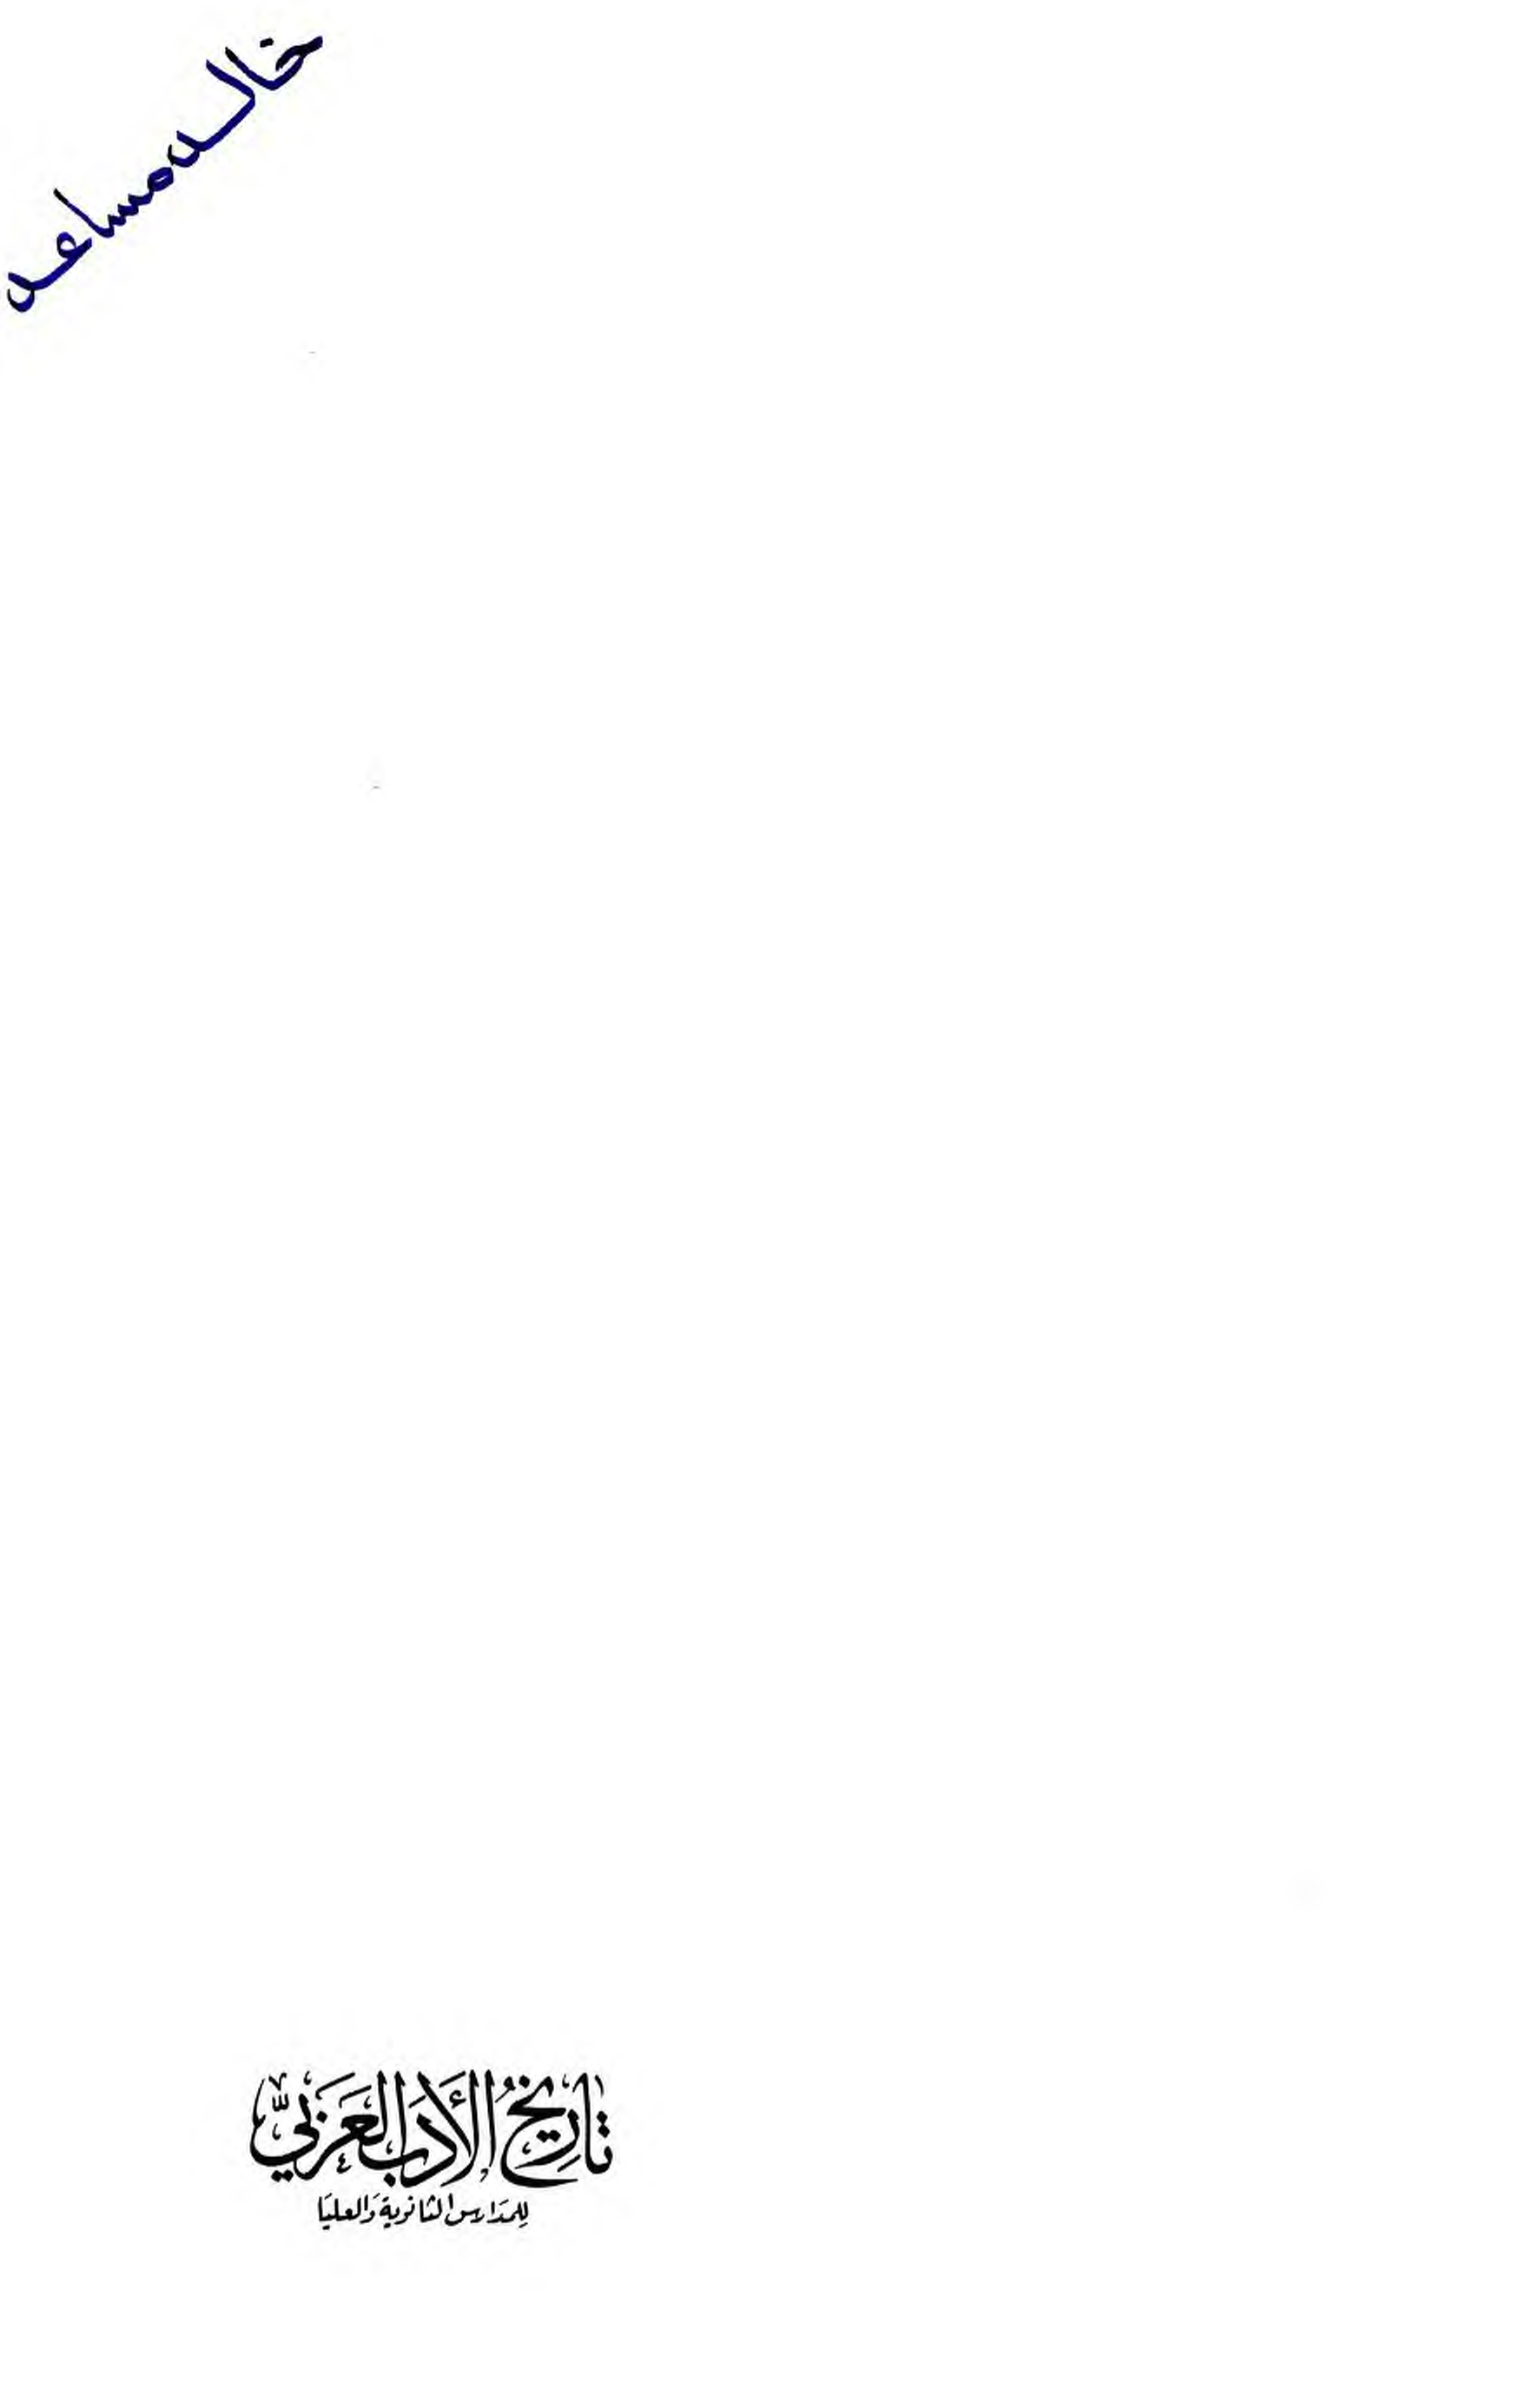 خالد مساعد
تاريخ الأدب العربي
للمدارس الثانوية والعليا